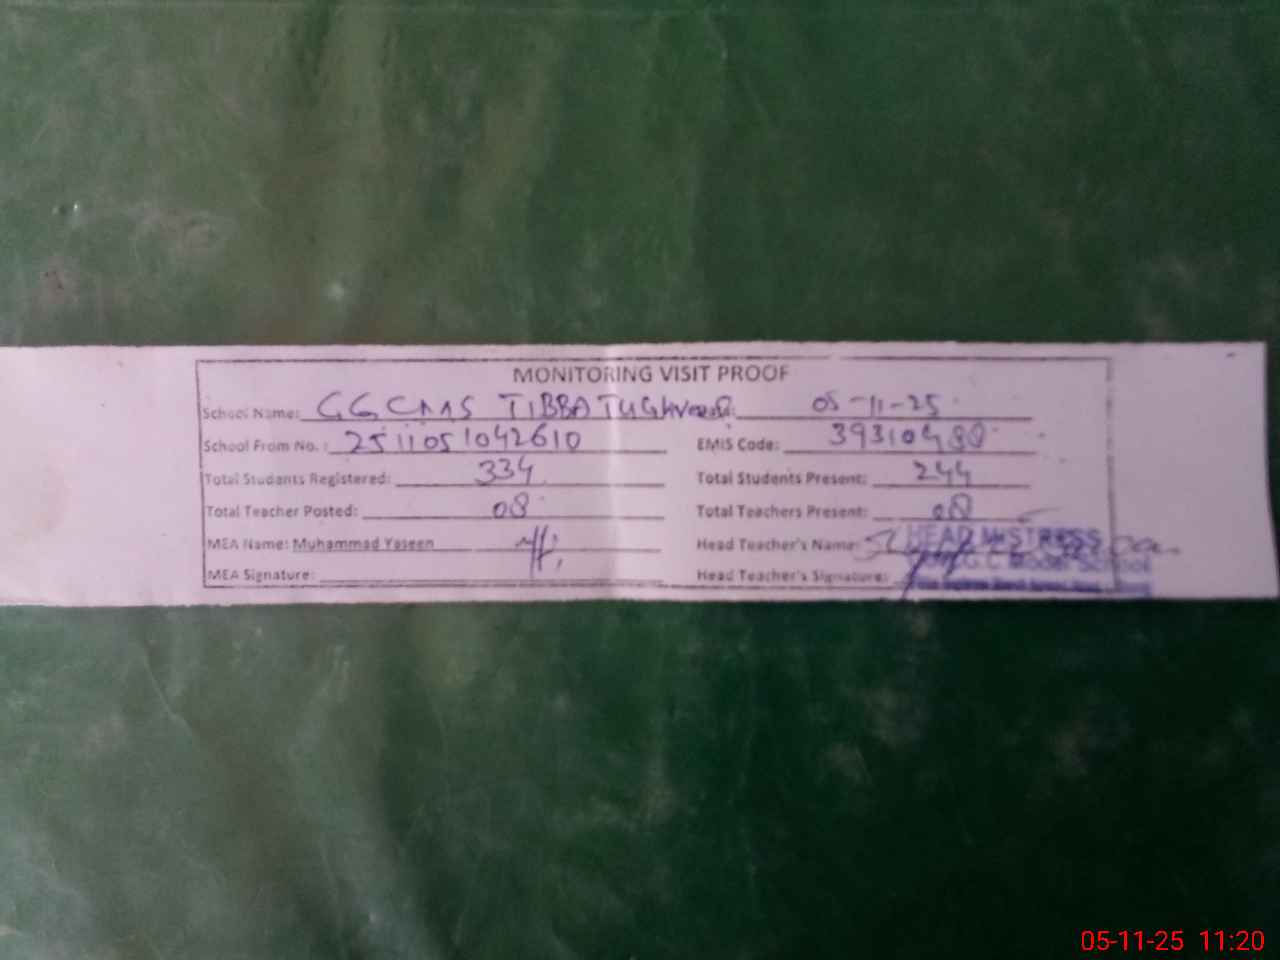 MONITORING VISIT PROOF
School Name: GGCMS TIBBA 05-11-25
School From No. : 2511051042610 EMIS Code: 39310480
Total Students Registered: 334 Total Students Present: 244
Total Teacher Posted: 08 Total Teachers Present: 08
MEA Name: Muhammad Yaseen Head Teacher's Name: HEAD MISTRESS
G.C Model School
MEA Signature: Head Teacher's Signature:
05-11-25 11:20